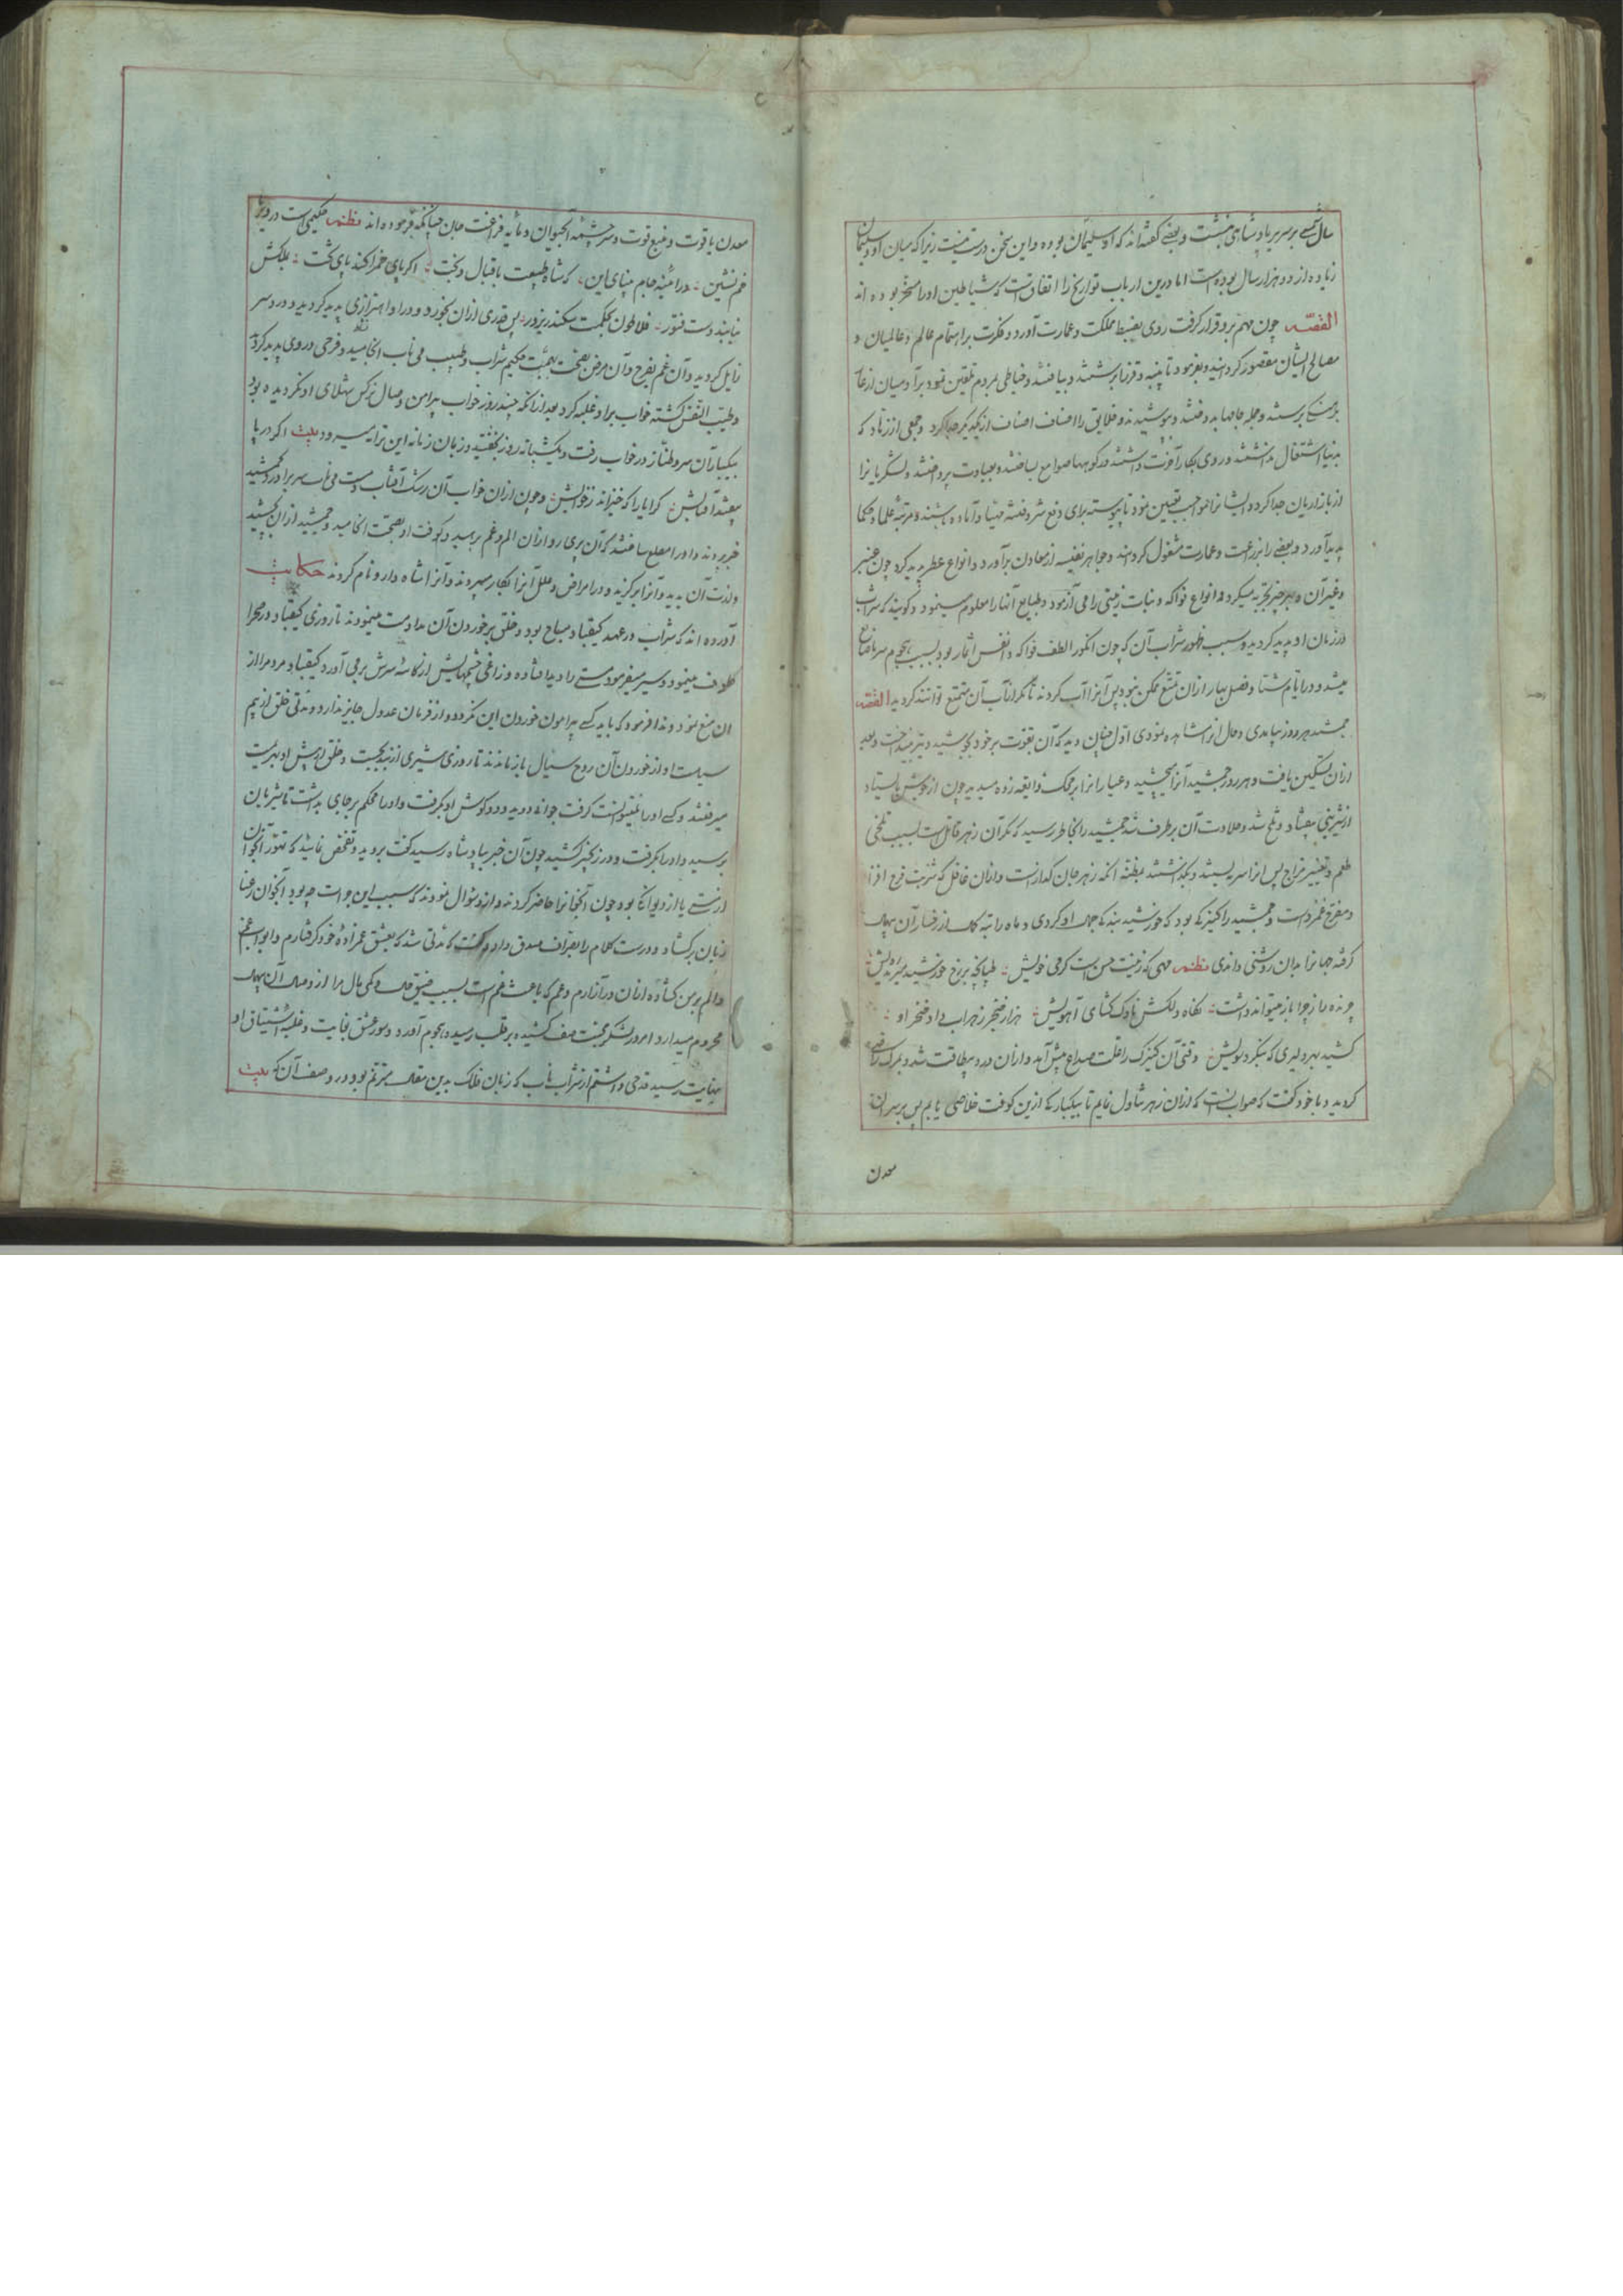 سال بر سریر پادشاهی بنشست و بعضی گفته‌اند که او سلیمان بوده و این سخن درست نیست زیرا که میان او و سلیمان
زیاده از دو هزار سال بوده است اما درین ارباب تواریخ را اتفاق است که شیاطین او را مسخر بوده‌اند
القصه چون مهم برو قرار گرفت روی بضبط مملکت و عمارت آورد و فکرت بر اهتمام عالم و عالمیان و
مصالح ایشان مقصور گردانید و بفرمود تا پنبه و قز برشتند و ببافتند و خیاطی بمردم تلقین نمود
برشتند و جمله جامها بدوختند و بپوشیدند و خلایق را اصناف اصناف از یکدیگر جدا کرد و جمعی از زهاد که
بدنیا اشتغال نداشتند و روی بکار آخرت داشتند در کوهها صوامع بساختند و بعبادت پرداختند و لشکریانرا
از بازاریان جدا کرد و ایشانرا مواجب تعیین نمود تا پیوسته برای دفع شر و فتنه مهیا و آماده باشند و مرتبه علما و حکما
پدید آورد و بعضی را بزراعت و عمارت مشغول گردانید و جواهر نفیسه از معادن برآورد و انواع عطر پدید کرد چون عنبر
و غیر آن و بهر چیز تجربه میکرد و انواع فواکه و نبات زمینی را می آزمود و طبایع آنها را معلوم مینمود و گویند که شراب
در زمان او پدید گردید و سبب ظهور شراب آن که چون انگور الطف فواکه و انفس اثمار بود بسبب هجوم سرما ضایع
میشد و در ایام شتا و فصل بهار ازان تمتع ممکن نبود پس آنرا آب کردند تا مگر از آب آن متمتع توانند گردید القصه
جمشید هر روز بیامدی و حال آنرا مشاهده نمودی اول چنان دید که آن بقوت بر خود بجوشید و تیر میانداخت و بعد
ازان تسکین یافت و هر روز جمشید آنرا میچشید و عیار آنرا بر محک ذایقه زده میدید چون از جوش باستاد
از شیرینی بیفتاد و تلخ شد و حلاوت آن برطرف شد جمشید را بخاطر رسید که مگر آن زهر قاتل است بسبب تلخی
طعم و تغییر مزاج پس آنرا سر ببستند و بگذاشتند بمظنه آنکه زهر جان گداز است و ازان غافل که شربت فرح افزا
و مفرح غمزداست و جمشید را کنیزکی بود که خورشید بندگی جمال او کردی و ماه راتبه کمال از رخسار آن
گرفته جهانرا بدان روشنی دادی نظم مهی که زینت حسن است گرمی خویش طپانچه بر رخ خورشید میزند رویش
چو نده را ز چرا باز میتواند داشت نگاه دلکش ناوک گشای آهویش هزار خنجر زهراب داد خنجر او
کشید بهر دلیری که بنگرد سویش وقتی آن کنیزک را علت صداع پیش آمد و ازان درد بیطاقت شد و بمرگ راضی
گردید و با خود گفت که صواب آنست که ازان زهر تناول نمایم تا بیکبارگی ازین کوفت خلاصی یابم پس بر سر آن
معدن
معدن یاقوت و منبع قوت و سرچشمه آب حیوان و مایه فراغت جان چنانکه فرموده‌اند نظم حکیمی است در
خم نشین در آئینه جام مینای این که شاه طبیعت باقبال و بخت اگر پای خم را کند پای تخت
نیابند دست فتور فلاطون بحکمت سکندر بزور پس قدری ازان بخورد و در او اهتزازی پدید گردید و درد سر
زایل گردید و آن غم بفرح و آن مرض بصحت بهمت حکیم شراب و طبیب می ناب انجامید و فرحی در وی پدید گردید
و طیب النفس گشته خواب برو غلبه کرد بعد از آنکه چند روز خواب پیرامن وصال نرگس شهلای او نگردیده بود
بیکبار آن سرو طناز در خواب رفت و یکشبانه روز بخفتید و زبان زمانه این ترانه میسرود بیت اگر در پا
بیفتد آفتابش کرا یارا که خیزاند ز خوابش و چون ازان خواب آن رشک آفتاب مست می ناب سر برآورد جمشید
خبر بردند و او را مطلع ساختند که آن پری رو ازان الم و غم برهید و کوفت او بصحت انجامید و جمشید ازان بچشید
و لذت آن بدید و آنرا برگزید و در امراض و علل آنرا بکار میبردند و آنرا شاه دارو نام کردند حکایت
آورده‌اند که شراب در عهد کیقباد مباح بود و خلق بر خوردن آن مداومت مینمودند تا روزی کیقباد در صحرا
طواف مینمود و سیر میفرمود مستی را دید افتاده و زاغی چشمهایش از کاسه سرش برمی آورد کیقباد مردم را از
ان منع نمود و ندا فرمود که باید کسی پیرامون خوردن این نگردد و از فرمان عدول جایز ندارد و مدتی خلق از بیم
سیاست او از خوردن آن روح سیال باز ماندند تا روزی شیری از بند بجست و خلق از پیش او بهزیمت
میرفتند و کسی او را نمیتوانست گرفت جوانی دوید و دو گوش او بگرفت و او را محکم بر جای بداشت تا شیربان
برسید و او را بگرفت و در زنجیر کشید چون آن خبر بپادشاه رسید گفت بروید و تفحص نمائید که تهور آنجوان
از مستی یا از دیوانگی بود چون آنجوانرا حاضر کردند و ازو سؤال نمودند که سبب این جرات چه بود آنجوان رعنا
زبان برگشاد و درست کلام را بصراف صدق داد و گفت که مدتی شد که بعشق عمزاده خود گرفتارم و ابواب غم
و الم بر من گشاده ازان در آزارم و عم که باعث غم است بسبب ضیق حال و کمی مال مرا از وصال آن
محروم میدارد امروز لشکر محنت صف کشیده بر قلب رسیده هجوم آورد و سورعشق بغایت و غلبه اشتیاق او
بنهایت رسید قدحی داشتم از شراب ناب که زبان فلک بدین مقال مترنم بود در وصف آن که بیت